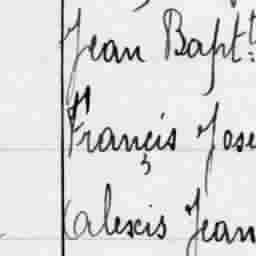 Jean Bapt.te
François Jose
Alexis Jean